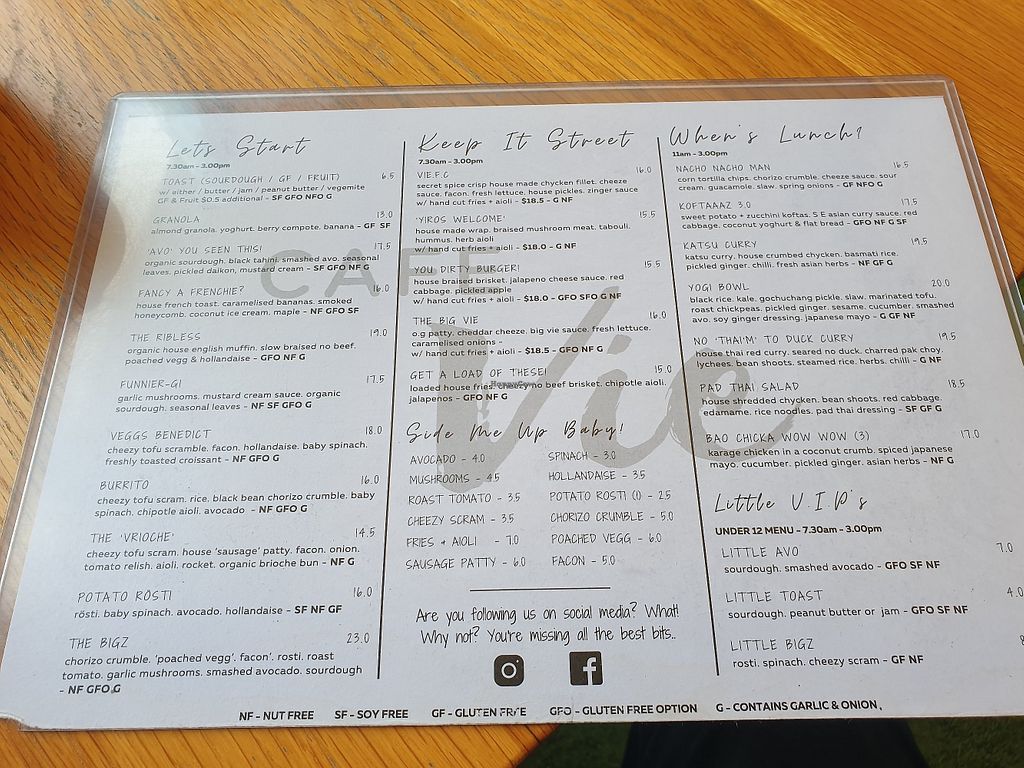 Lets Start
7.30am - 3.00pm
TOAST (SOURDOUGH / GF / FRUIT) 6.5
w/ either / butter / jam / peanut butter / vegemite
GF & Fruit $0.5 additional - SF GFO NFO G
GRANOLA 13.0
almond granola. yoghurt. berry compote. banana - GF SF
'AVO' YOU SEEN THIS! 17.5
organic sourdough. black tahini. smashed avo. seasonal
leaves. pickled daikon, mustard cream - SF GFO NF G
FANCY A FRENCHIE? 16.0
house french toast. caramelised bananas. smoked
honeycomb. coconut ice cream. maple - NF GFO SF
THE RIBLESS 19.0
organic house english muffin. slow braised no beef.
poached vegg & hollandaise - GFO NF G
FUNNIER-GI 17.5
garlic mushrooms. mustard cream sauce. organic
sourdough. seasonal leaves - NF SF GFO G
VEGGS BENEDICT 18.0
cheezy tofu scramble. facon. hollandaise. baby spinach.
freshly toasted croissant - NF GFO G
BURRITO 16.0
cheezy tofu scram. rice. black bean chorizo crumble. baby
spinach. chipotle aioli. avocado - NF GFO G
THE 'VRIOCHE' 14.5
cheezy tofu scram. house 'sausage' patty. facon. onion.
tomato relish. aioli. rocket. organic brioche bun - NF G
POTATO RÖSTI 16.0
rösti. baby spinach. avocado. hollandaise - SF NF GF
THE BIGZ 23.0
chorizo crumble. 'poached vegg'. facon'. rosti. roast
tomato. garlic mushrooms. smashed avocado. sourdough
- NF GFO G
Keep It Street
7.30am - 3.00pm
V.I.E.F.C 16.0
secret spice crisp house made chycken fillet. cheeze
sauce. facon. fresh lettuce. house pickles. zinger sauce
w/ hand cut fries + aioli - $18.5 - G NF
'YIROS WELCOME' 15.5
house made wrap. braised mushroom meat. tabouli.
hummus. herb aioli
w/ hand cut fries + aioli - $18.0 - G NF
YOU DIRTY BURGER! 15.5
house braised brisket. jalapeno cheese sauce. red
cabbage. pickled apple
w/ hand cut fries + aioli - $18.0 - GFO SFO G NF
THE BIG VIE 16.0
o.g patty. cheddar cheeze. big vie sauce. fresh lettuce.
caramelised onions -
w/ hand cut fries + aioli - $18.5 - GFO NF G
GET A LOAD OF THESE! 15.0
loaded house fries. cheezy no beef brisket. chipotle aioli.
jalapenos - GFO NF G
Side Me Up Baby!
AVOCADO - 4.0 SPINACH - 3.0
MUSHROOMS - 4.5 HOLLANDAISE - 3.5
ROAST TOMATO - 3.5 POTATO ROSTI (1) - 2.5
CHEEZY SCRAM - 3.5 CHORIZO CRUMBLE - 5.0
FRIES + AIOLI - 7.0 POACHED VEGG - 6.0
SAUSAGE PATTY - 6.0 FACON - 5.0
Are you following us on social media? What!
Why not? You're missing all the best bits..
When's Lunch?
11am - 3.00pm
NACHO NACHO MAN 16.5
corn tortilla chips. chorizo crumble. cheeze sauce. sour
cream. guacamole. slaw. spring onions - GF NFO G
KOFTAAAZ 3.0 17.5
sweet potato + zucchini koftas. S E asian curry sauce. red
cabbage. coconut yoghurt & flat bread - GFO NF G SF
KATSU CURRY 19.5
katsu curry. house crumbed chycken. basmati rice.
pickled ginger. chilli. fresh asian herbs - NF GF G
YOGI BOWL 20.0
black rice. kale. gochuchang pickle. slaw. marinated tofu.
roast chickpeas. pickled ginger. sesame. cucumber. smashed
avo. soy ginger dressing. japanese mayo - G GF NF
NO 'THAI'M' TO DUCK CURRY 19.5
house thai red curry. seared no duck. charred pak choy.
lychees. bean shoots. steamed rice. herbs. chilli - G NF
PAD THAI SALAD 18.5
house shredded chycken. bean shoots. red cabbage.
edamame. rice noodles. pad thai dressing - SF GF G
BAO CHICKA WOW WOW (3) 17.0
karage chicken in a coconut crumb. spiced japanese
mayo. cucumber. pickled ginger. asian herbs - NF G
Little V.I.P's
UNDER 12 MENU - 7.30am - 3.00pm
LITTLE AVO 7.0
sourdough. smashed avocado - GFO SF NF
LITTLE TOAST 4.0
sourdough. peanut butter or jam - GFO SF NF
LITTLE BIGZ
rosti. spinach. cheezy scram - GF NF
CAFE
Vie
NF - NUT FREE SF - SOY FREE GF - GLUTEN FREE GFO - GLUTEN FREE OPTION G - CONTAINS GARLIC & ONION.